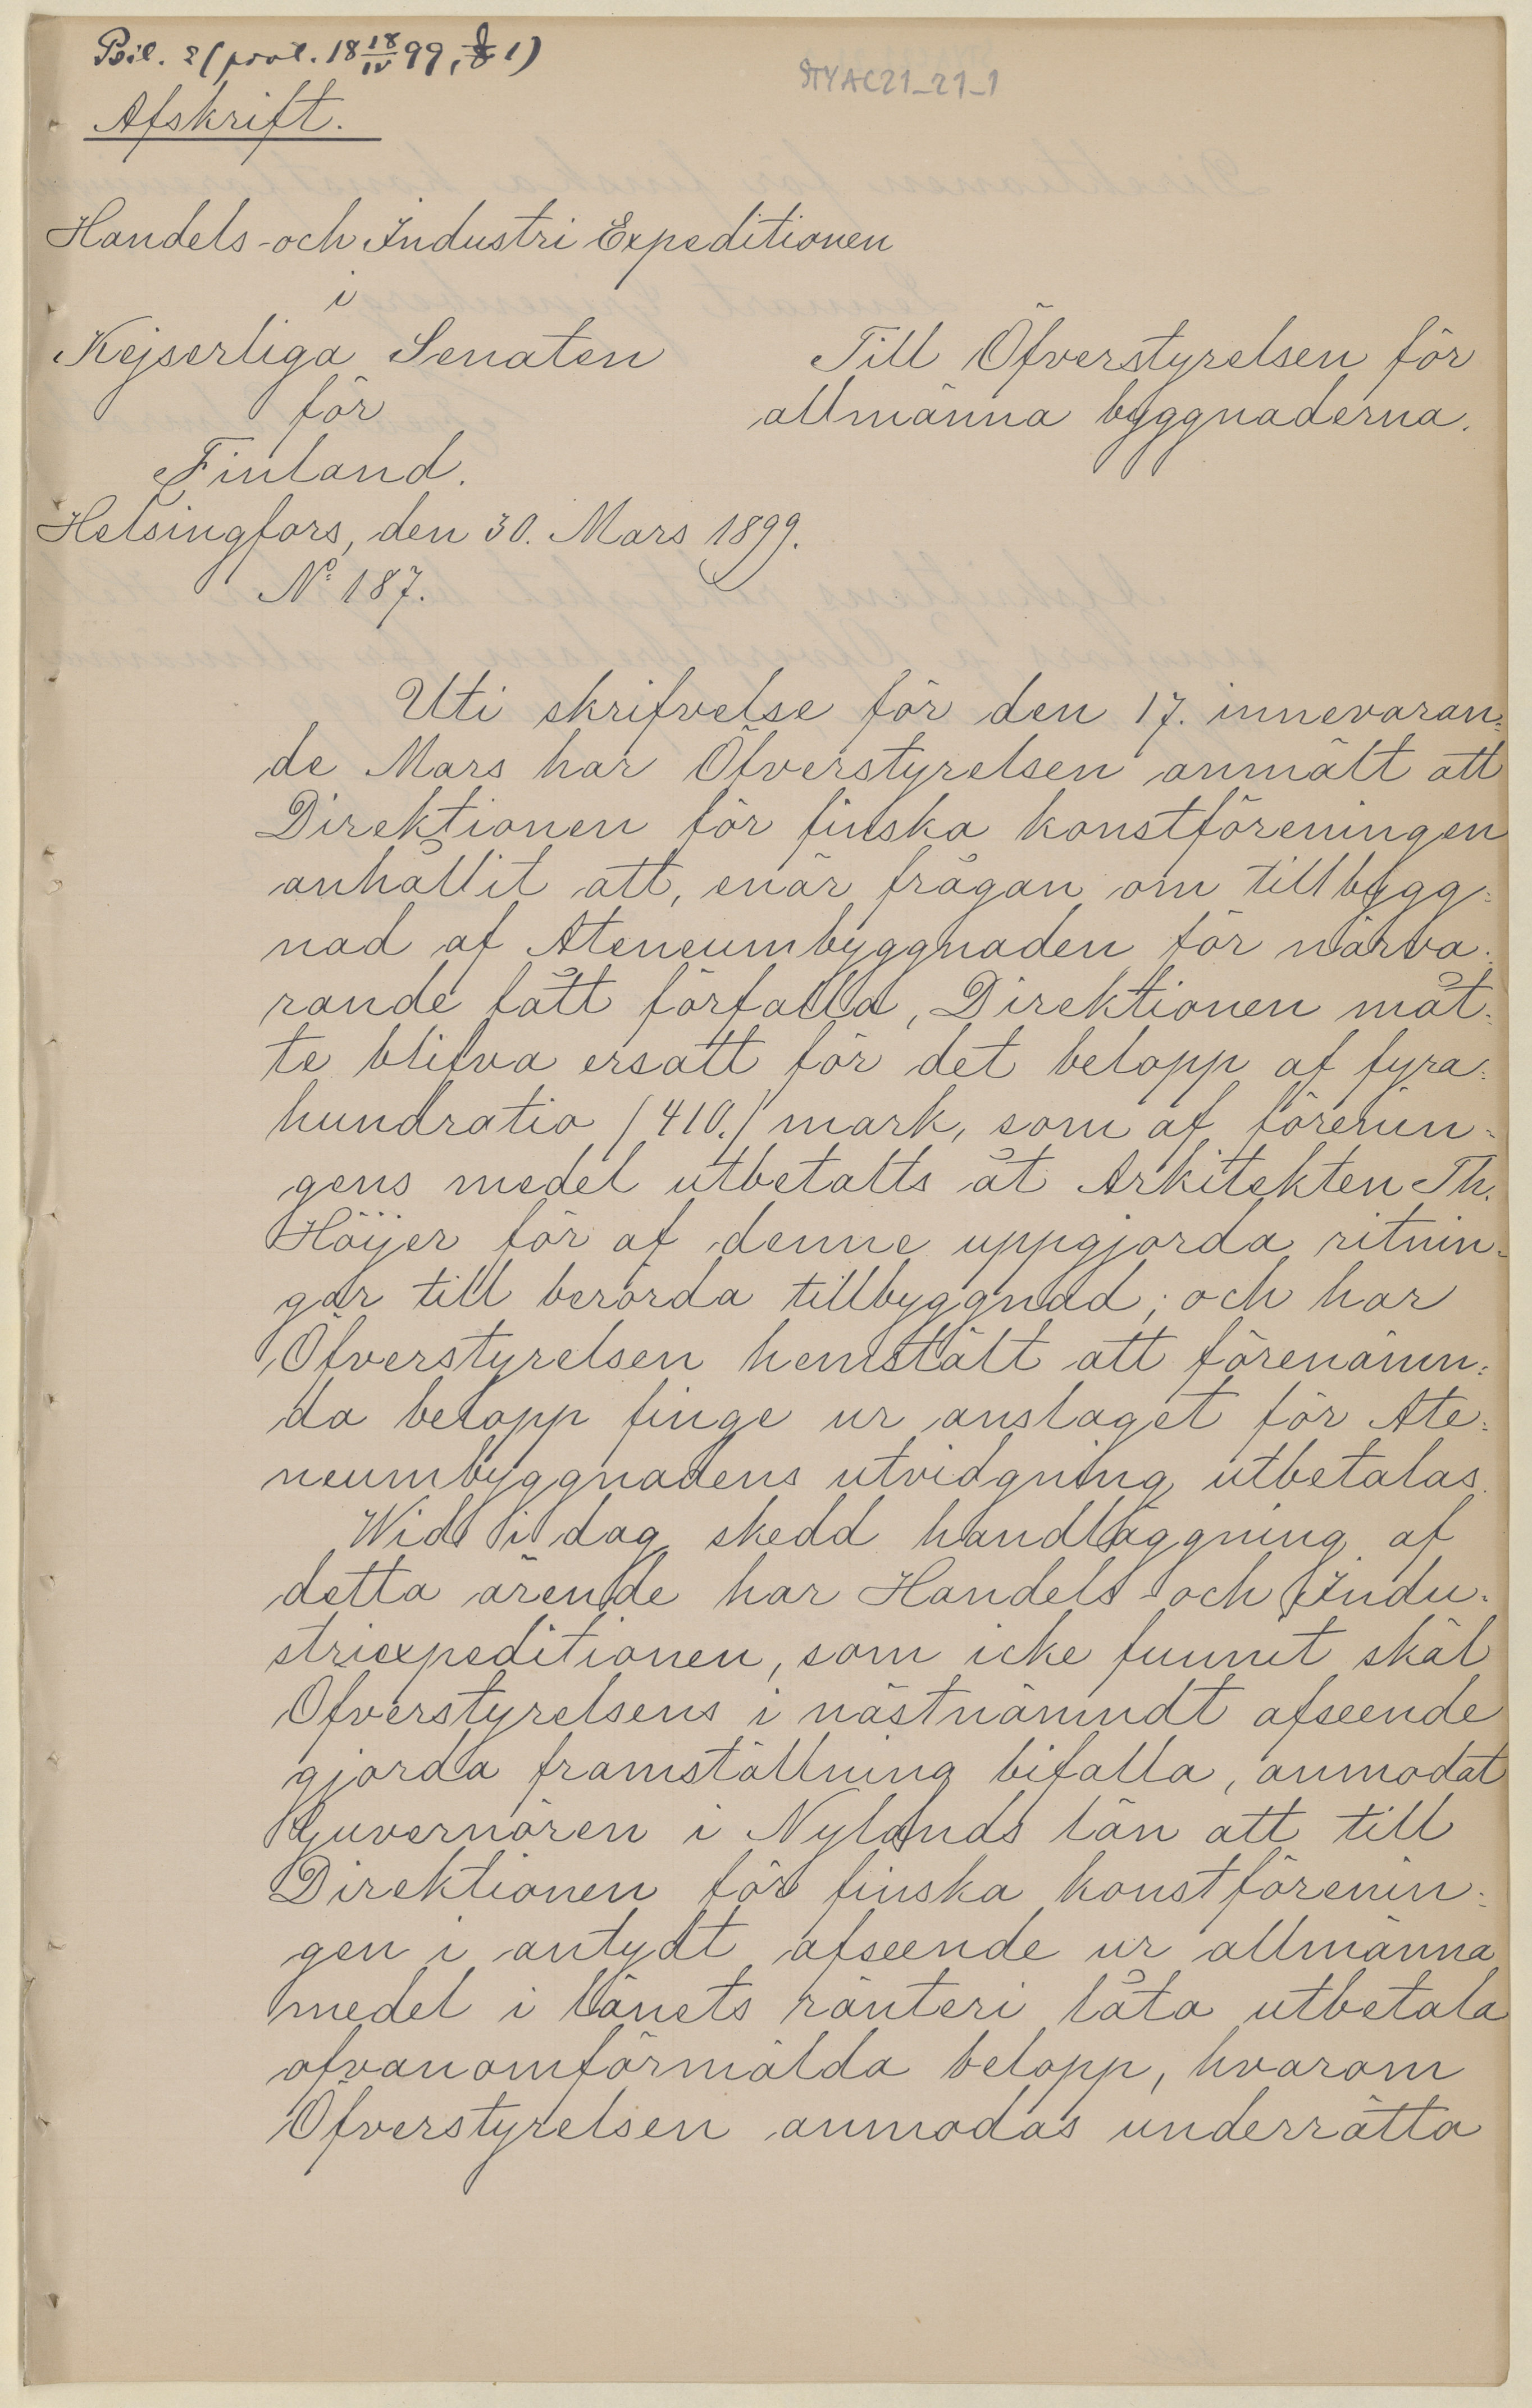 Bil. 2 (prot. 18 18/IV 99, § 1)
STYAC21_21_1
Afskrift.
Handels- och Industri Expeditionen
i
Kejserliga Senaten
för
Finland.
Helsingfors, den 30. Mars 1899.
No 187.
Till Öfverstyrelsen för
allmänna byggnaderna.
Uti skrifvelse för den 17. innevaran=
de Mars har Öfverstyrelsen anmält att
Direktionen för finska konstföreningen
anhållit att, enär frågan om tillbygg=
nad af Ateneumbyggnaden för närva=
rande fått förfalla, Direktionen måt=
te blifva ersatt för det belopp af fyra=
hundratio (410.) mark, som af förenin=
gens medel utbetalts åt Arkitekten Th.
Höijer för af denne uppgjorda ritnin=
gar till berörda tillbyggnad; och har
Öfverstyrelsen hemstält att förenämn=
da belopp finge ur anslaget för Ate=
neumbyggnadens utvidgning utbetalas.
Wid i dag skedd handläggning af
detta ärende har Handels- och Indu=
striexpeditionen, som icke funnit skäl
Öfverstyrelsens i nästnämndt afseende
gjorda framställning bifalla, anmodat
Guvernören i Nylands län att till
Direktionen för finska konstförenin=
gen i antydt afseende ur allmänna
medel i länets ränteri låta utbetala
ofvanomförmälda belopp, hvarom
Öfverstyrelsen anmodas underrätta